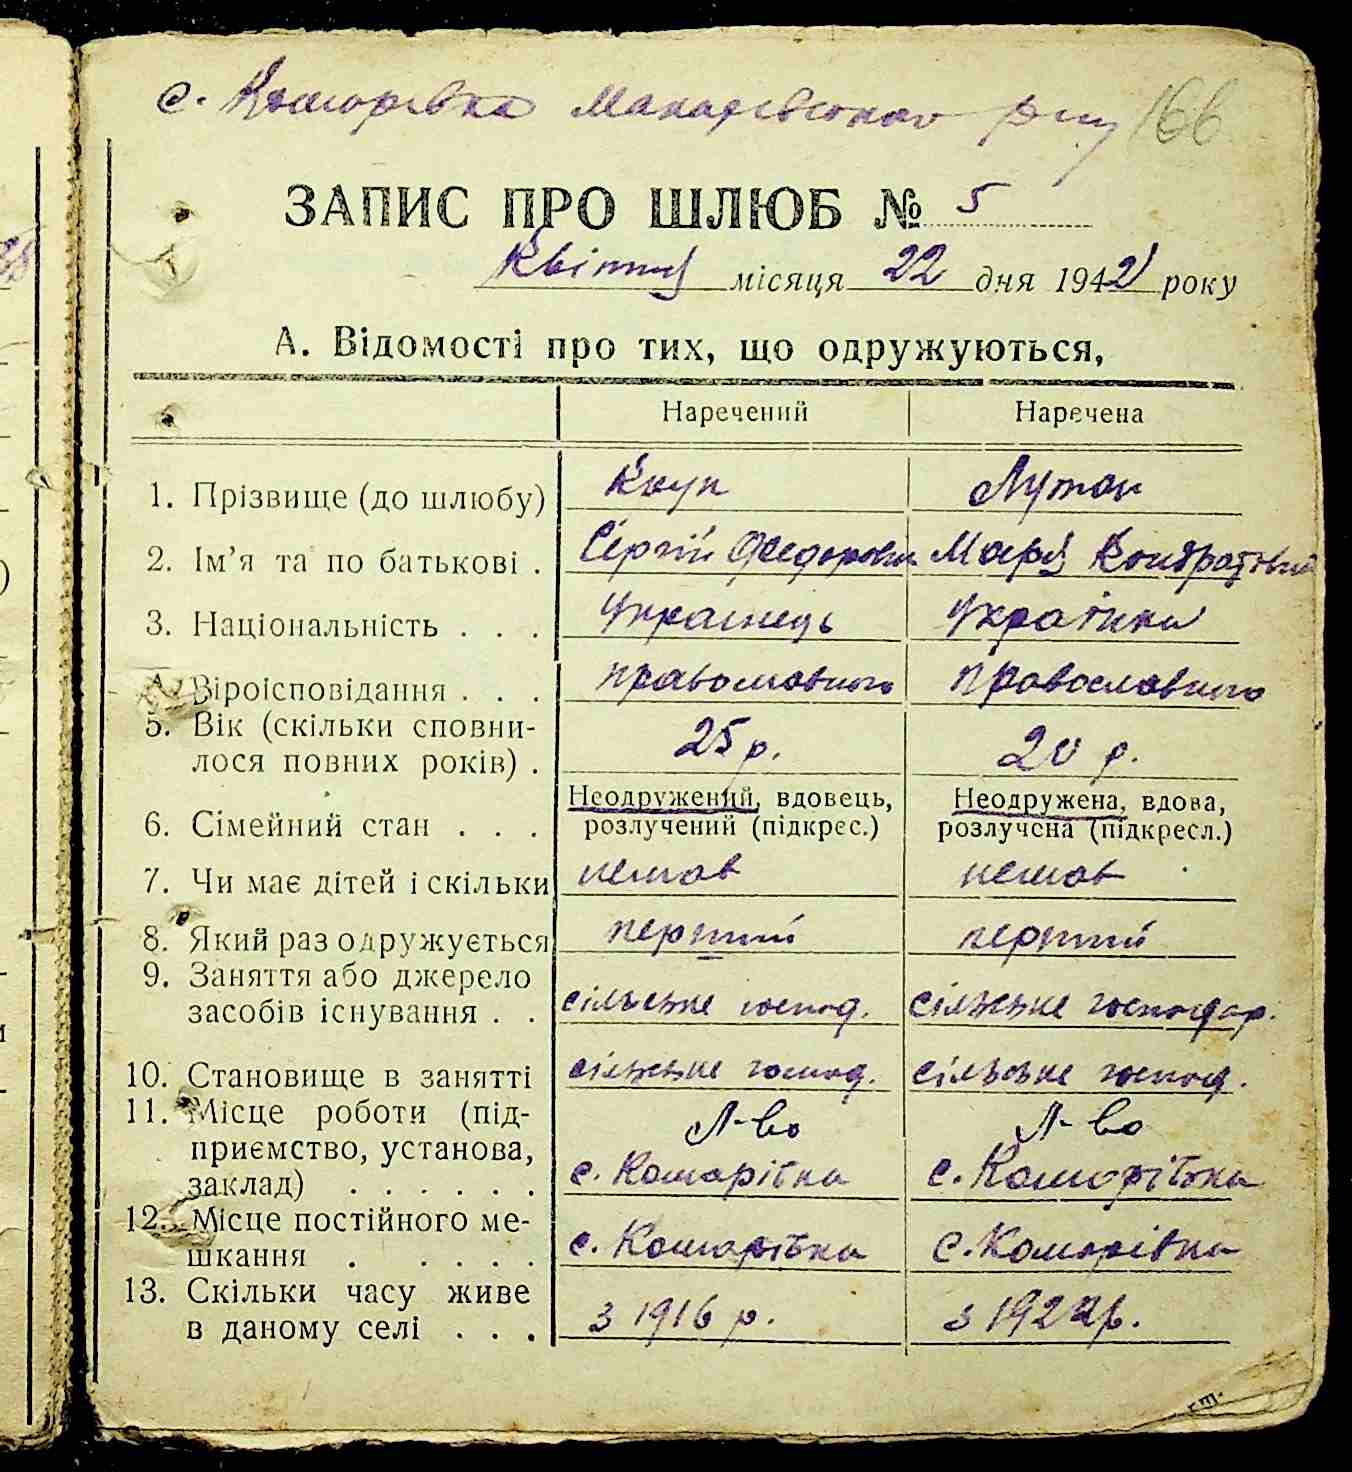 с. Комарівка Макарівського р-ну 166
ЗАПИС ПРО ШЛЮБ № 5
Квітня місяця 22 дня 1942 року
А. Відомості про тих, що одружуються,
Наречений Наречена
1. Прізвище (до шлюбу) Кнуп Лутак
2. Ім'я та по батькові . Сергій Федорович Марія Кондратовна
3. Національність . . . Українець Українка
4. Віроісповідання . . . православного православного
5. Вік (скільки сповни-
лося повних років) . 25 р. 20 р.
6. Сімейний стан . . . Неодружений, вдовець, розлучений (підкрес.) Неодружена, вдова, розлучена (підкресл.)
7. Чи має дітей і скільки немає немає
8. Який раз одружується перший перший
9. Заняття або джерело
засобів існування . . сільське господ. сільське господар.
10. Становище в занятті сільське господ. сільське господ.
11. Місце роботи (під-
приємство, установа, Л-во Л-во
заклад) . . . . . . с. Комарівка с. Комарівка
12. Місце постійного ме-
шкання . . . . . с. Комарівка с. Комарівка
13. Скільки часу живе
в даному селі . . . з 1916 р. з 1922 р.